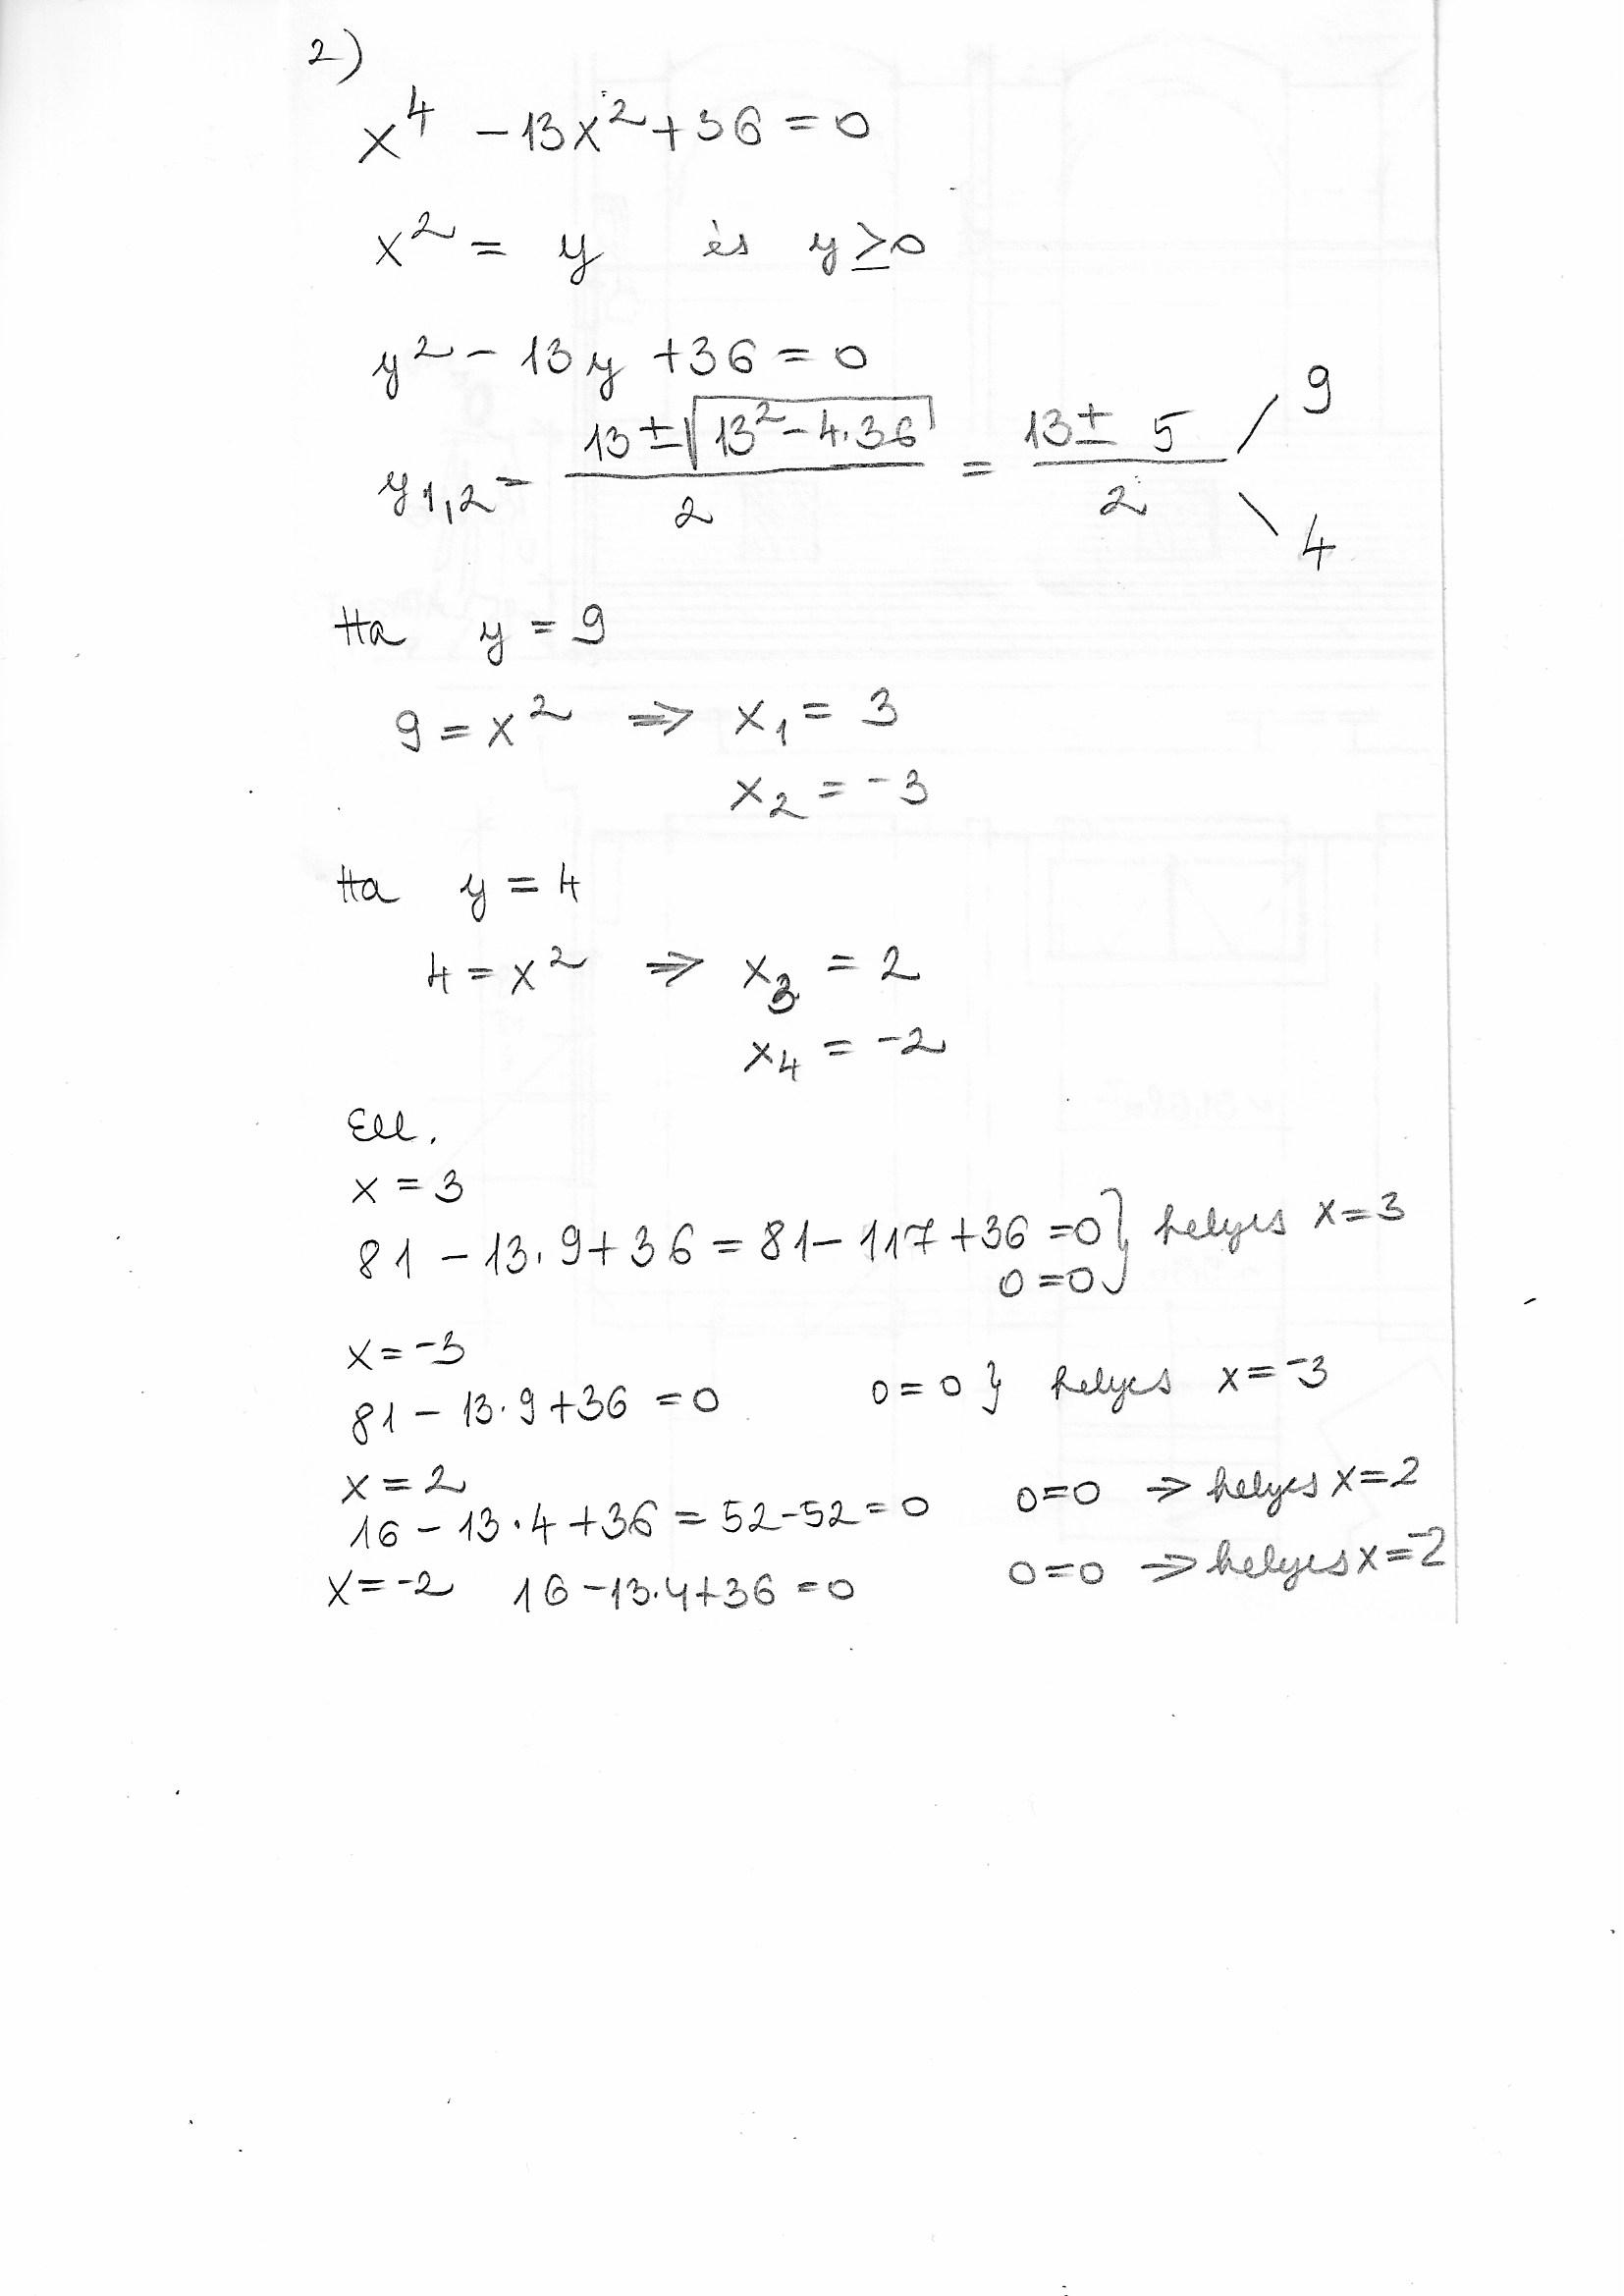 2)
x⁴ - 13x² + 36 = 0
x² = y és y ≥ 0
y² - 13y + 36 = 0
y₁,₂ = (13 ± √(13² - 4·36)) / 2 = (13 ± 5) / 2 / 9 \ 4
Ha y = 9
9 = x² ⇒ x₁ = 3
x₂ = -3
Ha y = 4
4 = x² ⇒ x₃ = 2
x₄ = -2
Ell.
x = 3
81 - 13·9 + 36 = 81 - 117 + 36 = 0 } helyes x = 3
0 = 0
x = -3
81 - 13·9 + 36 = 0 0 = 0 } helyes x = -3
x = 2
16 - 13·4 + 36 = 52 - 52 = 0 0 = 0 ⇒ helyes x = 2
x = -2 16 - 13·4 + 36 = 0 0 = 0 ⇒ helyes x = -2